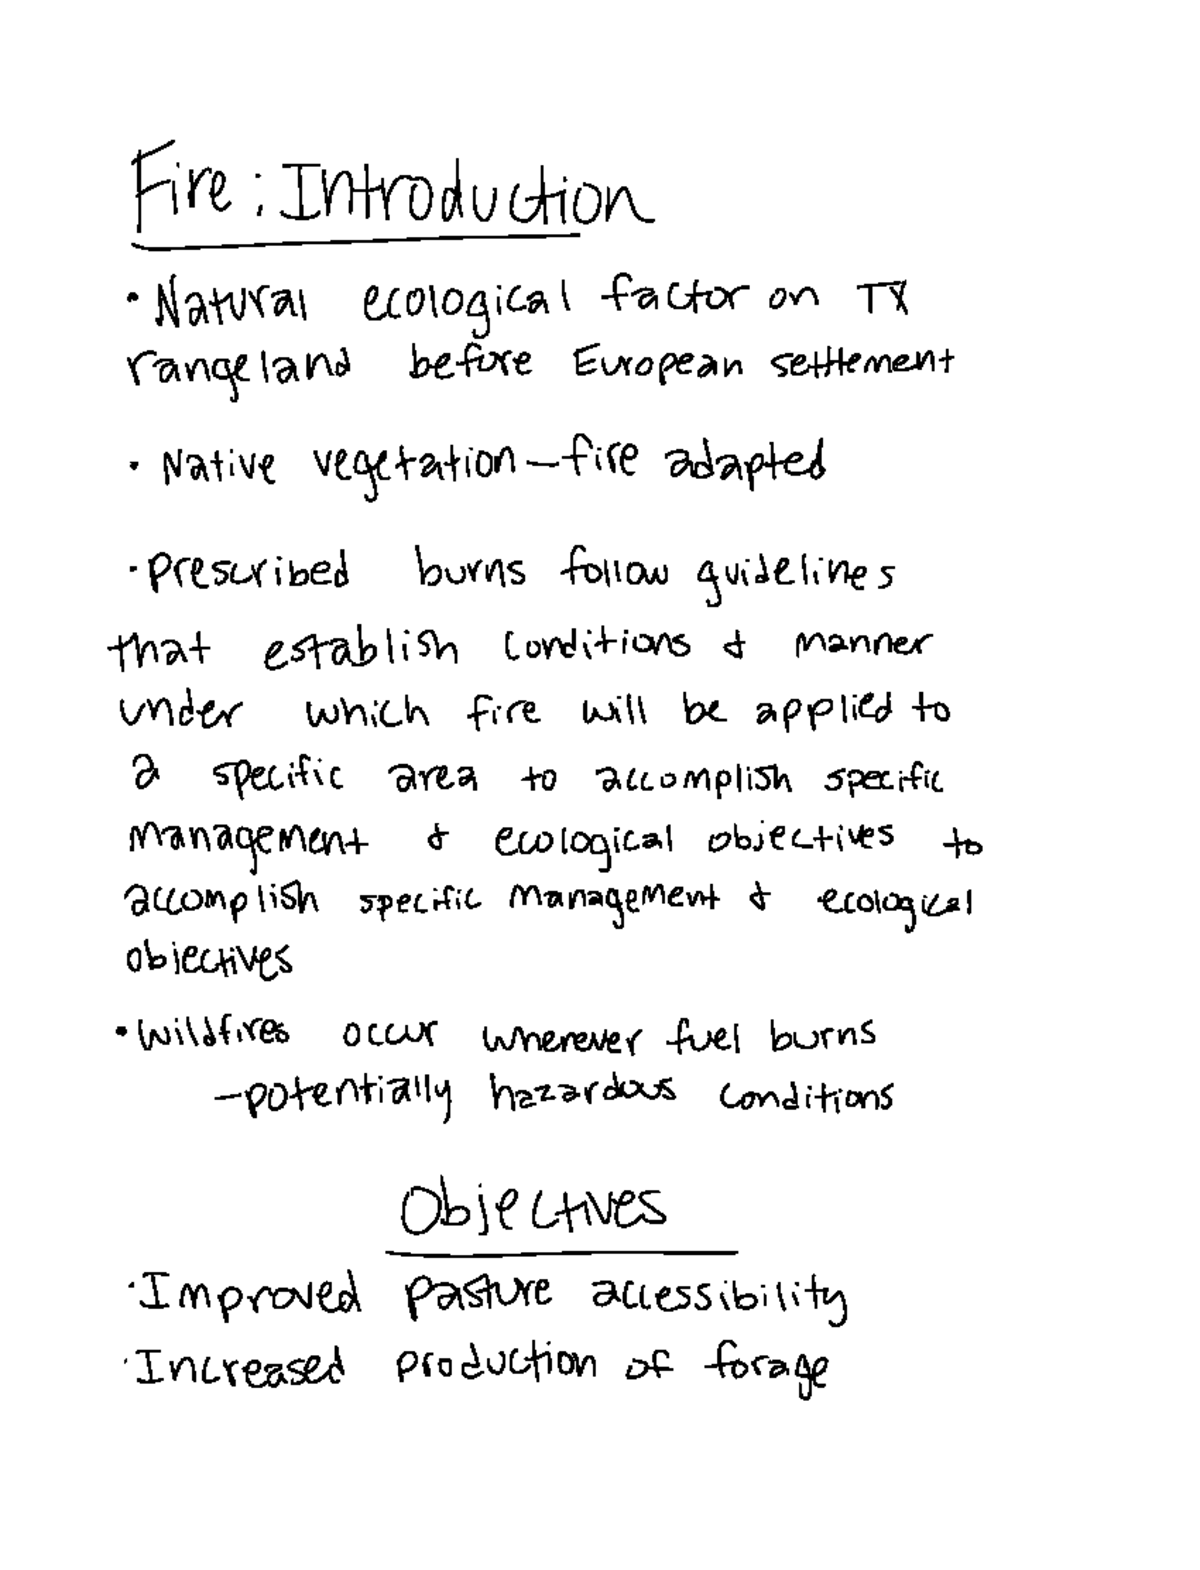 Fire: Introduction
• Natural ecological factor on TX
rangeland before European settlement
• Native vegetation – fire adapted
• Prescribed burns follow guidelines
that establish conditions & manner
under which fire will be applied to
a specific area to accomplish specific
management & ecological objectives to
accomplish specific management & ecological
objectives
• Wildfires occur wherever fuel burns
– potentially hazardous conditions
Objectives
• Improved pasture accessibility
• Increased production of forage